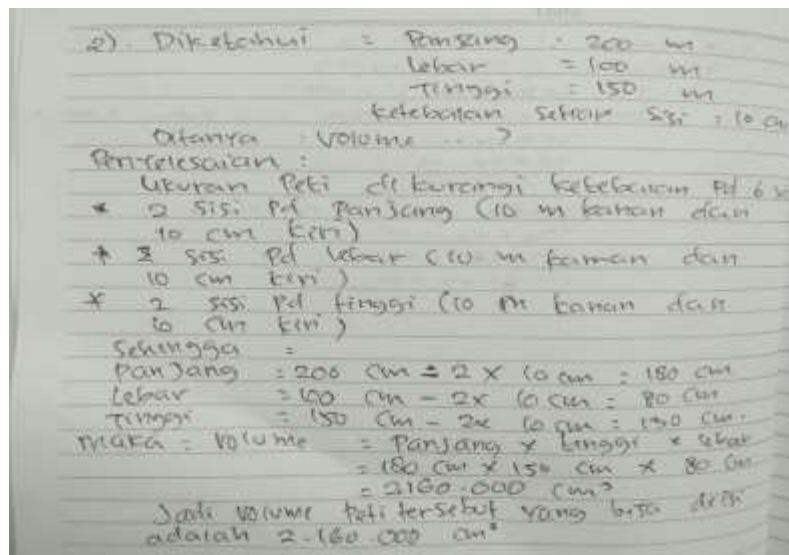 2). Diketahui : Panjang : 200 m
Lebar = 100 m
Tinggi : 150 m
ketebalan setiap sisi : 10 cm
Ditanya : Volume ... ?
Penyelesaian :
Ukuran Peti di kurangi ketebalan Pd 6
* 2 sisi Pd Panjang (10 m kanan dan
10 cm kiri)
* 2 sisi Pd lebar (10 m kanan dan
10 cm kiri)
* 2 sisi Pd tinggi (10 m kanan dan
10 cm kiri)
Sehingga =
Panjang : 200 cm - 2 x 10 cm : 180 cm
Lebar = 100 cm - 2x 10 cm : 80 cm
Tinggi = 150 cm - 2x 10 cm : 130 cm.
maka = Volume = Panjang x tinggi x lebar
= 180 cm x 150 cm x 80 cm
= 2160.000 cm³
Jadi volume Peti tersebut yang bisa
adalah 2.160.000 cm³